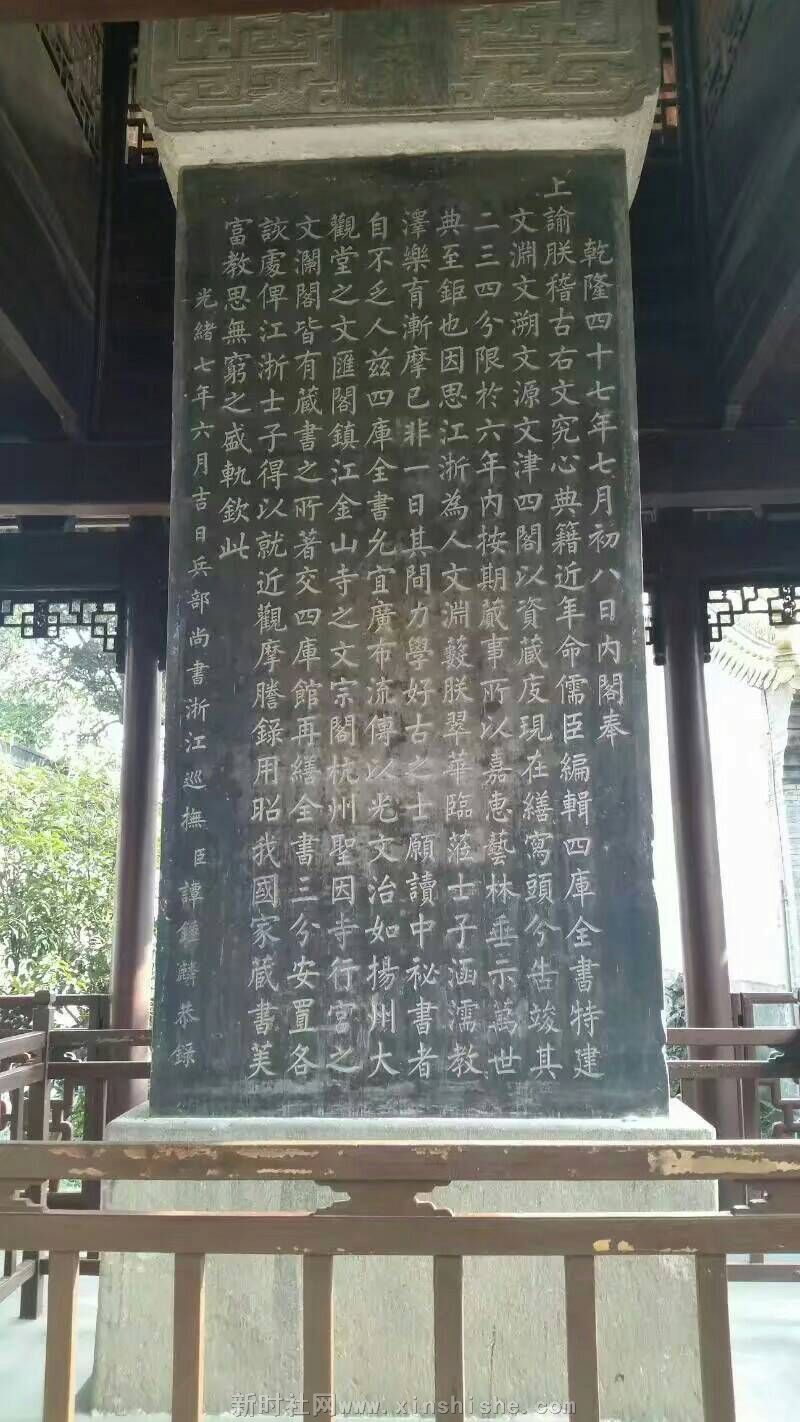 乾隆四十七年七月初八日内閣奉
上諭朕稽古右文究心典籍近年命儒臣編輯四庫全書特建
文淵文溯文源文津四閣以資蔵庋現在繕寫頭分告竣其
二三四分限於六年内按期蕆事所以嘉惠藝林垂示萬世
典至鉅也因思江浙為人文淵藪朕翠華臨蒞士子涵濡教
澤樂育漸摩已非一日其間力學好古之士願讀中祕書者
自不乏人兹四庫全書允宜廣布流傳以光文治如揚州大
觀堂之文匯閣鎮江金山寺之文宗閣杭州聖因寺行宮之
文瀾閣皆有蔵書之所著交四庫館再繕全書三分安置各
該處俾江浙士子得以就近觀摩謄錄用昭我國家蔵書美
富教思無窮之盛軌欽此
光緒七年六月吉日兵部尚書浙江巡撫臣譚鍾麟恭錄
新时社网www.xinshishe.com